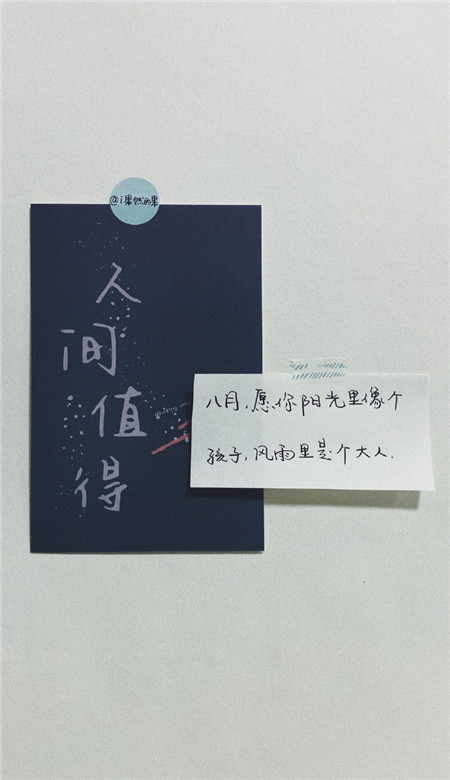 @i果然而果
人
间
值
得
八月,愿你阳光里像个
孩子,风雨里是个大人.